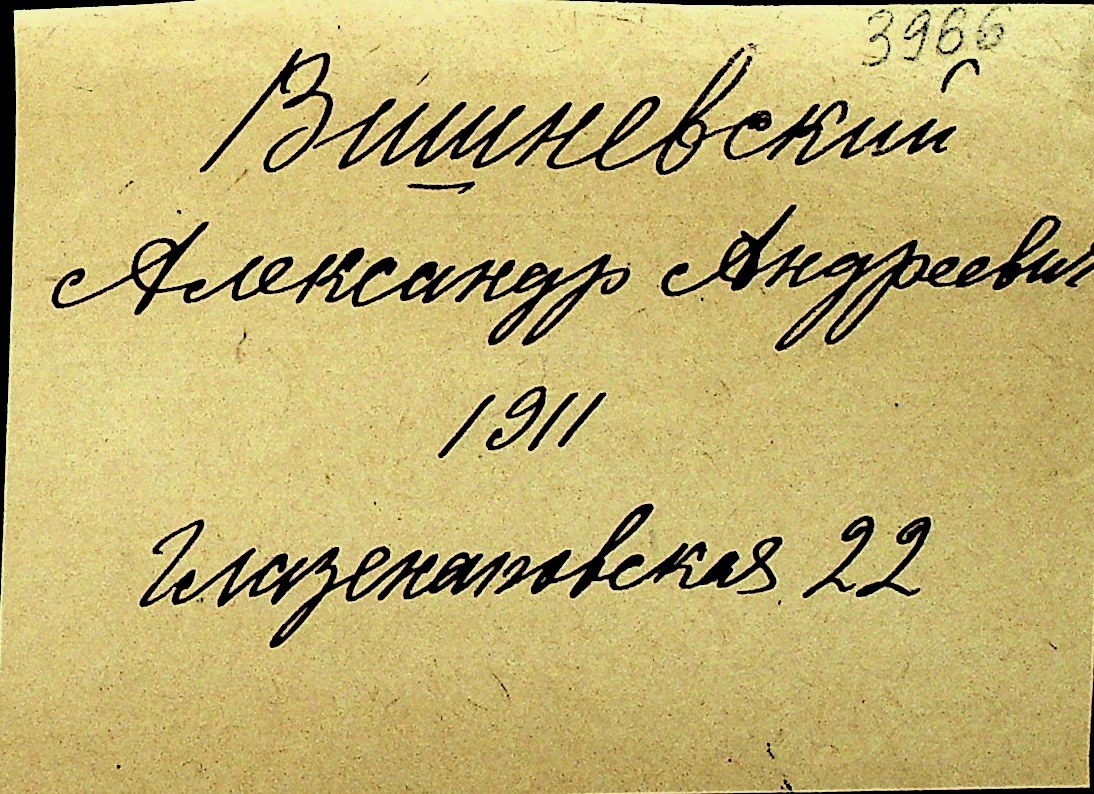 3966
Вишневский
Александр Андреевич
1911
Глазенаповская 22